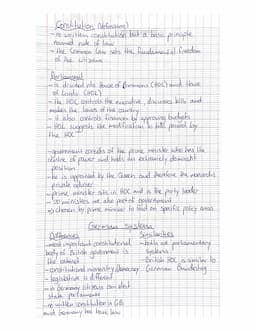 Constitution (Definition)
- no written constitution but a basic principle
named rule of law
- the Common Law sets the fundamental freedom
of the citizens
Parliament
- is divided into House of Commons (HOC) and House
of Lords (HOL)
- the HOC controls the executive, discusses bills and
makes the laws of the country
- it also controls finances by approving budgets
- HOL suggests the modification to bills passed by
the HOC
- government consists of the prime minister who has the
centre of power and holds an extremely dominant
position
- he is appointed by the Queen and therefore the monarch's
private adviser
- prime minister sits in HOC and is the party leader
- 20 ministries are also part of government
→ chosen by prime minister to lead on specific policy areas
German system
Differences
- most important constitutional
body of British government is
the cabinet
- constitutional monarchy/democracy
- legislative is different
- in Germany citizens can elect
state parliaments
- no written constitution in GB
and Germany has basic law
Similarities
- both are parliamentary
systems
- British HOC is similar to
German Bundestag